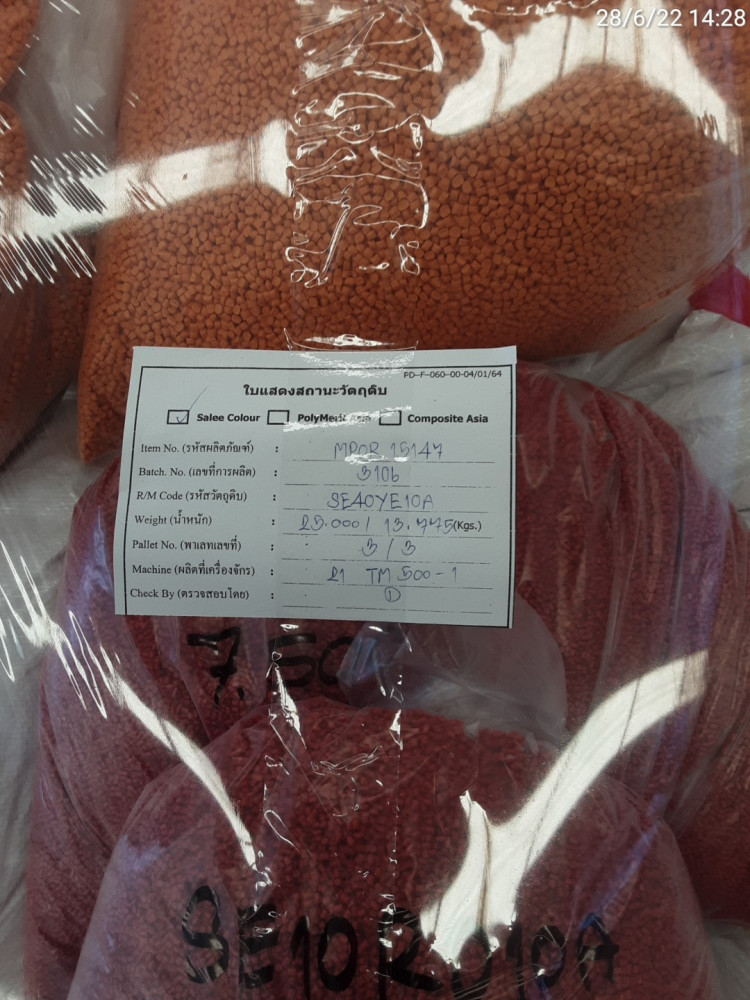 28/6/22 14:28
PD-F-060-00-04/01/64
ใบแสดงสถานะวัตถุดิบ
Salee Colour PolyMerit Asia Composite Asia
Item No. (รหัสผลิตภัณฑ์) : MPOR 15147
Batch. No. (เลขที่การผลิต) : 3106
R/M Code (รหัสวัตถุดิบ) : SE40YE10A
Weight (น้ำหนัก) : 25.000 / 13.775 (Kgs.)
Pallet No. (พาเลทเลขที่) : 3 / 3
Machine (ผลิตที่เครื่องจักร) : 21 TM 500-1
Check By (ตรวจสอบโดย) : 1
SE10RD10A